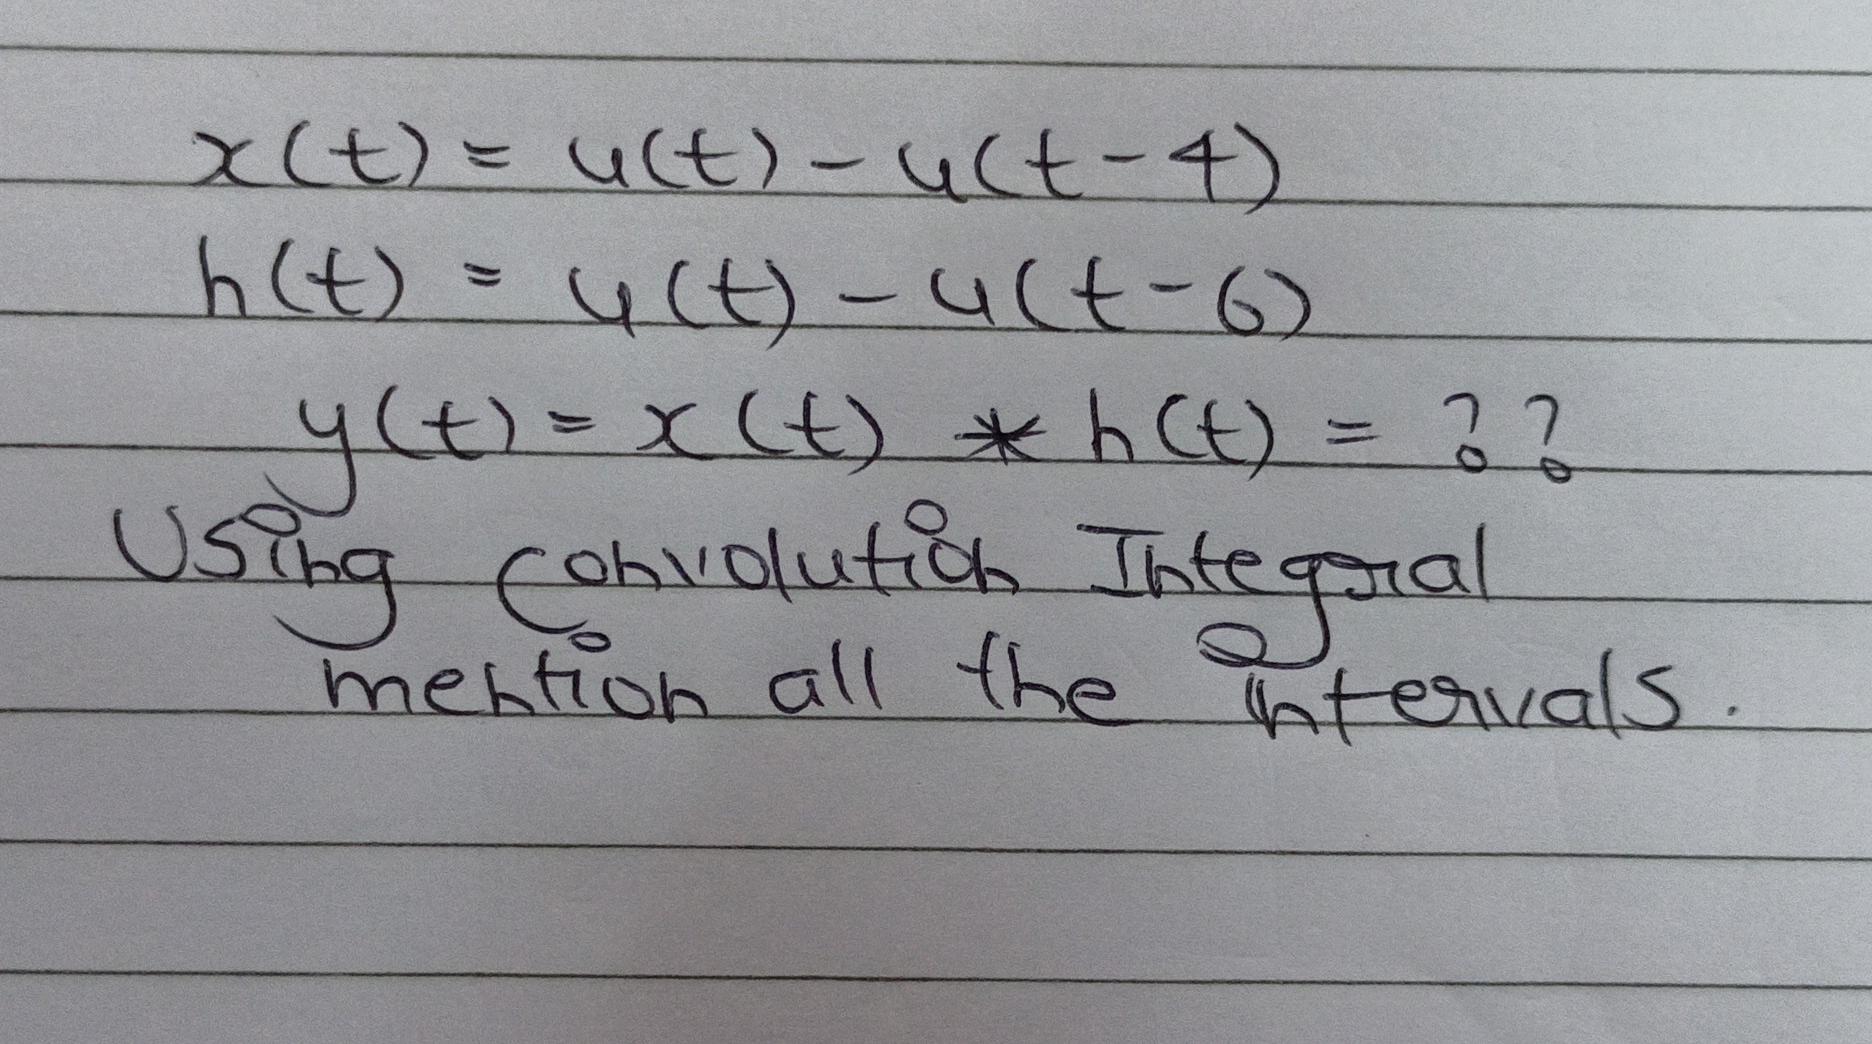 x(t) = u(t) - u(t-4)
h(t) = u(t) - u(t-6)
y(t) = x(t) * h(t) = ??
Using Convolution Integral
mention all the intervals.